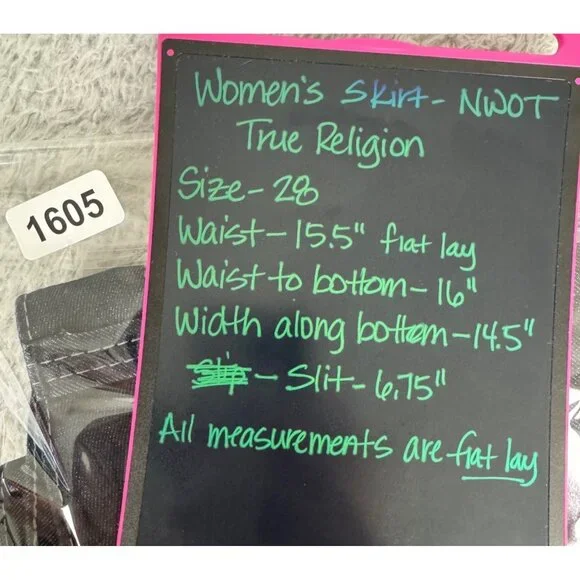 Women's Skirt - NWOT
True Religion
Size - 28
1605
Waist - 15.5" flat lay
Waist to bottom - 16"
Width along bottom - 14.5"
Slip - Slit - 6.75"
All measurements are flat lay